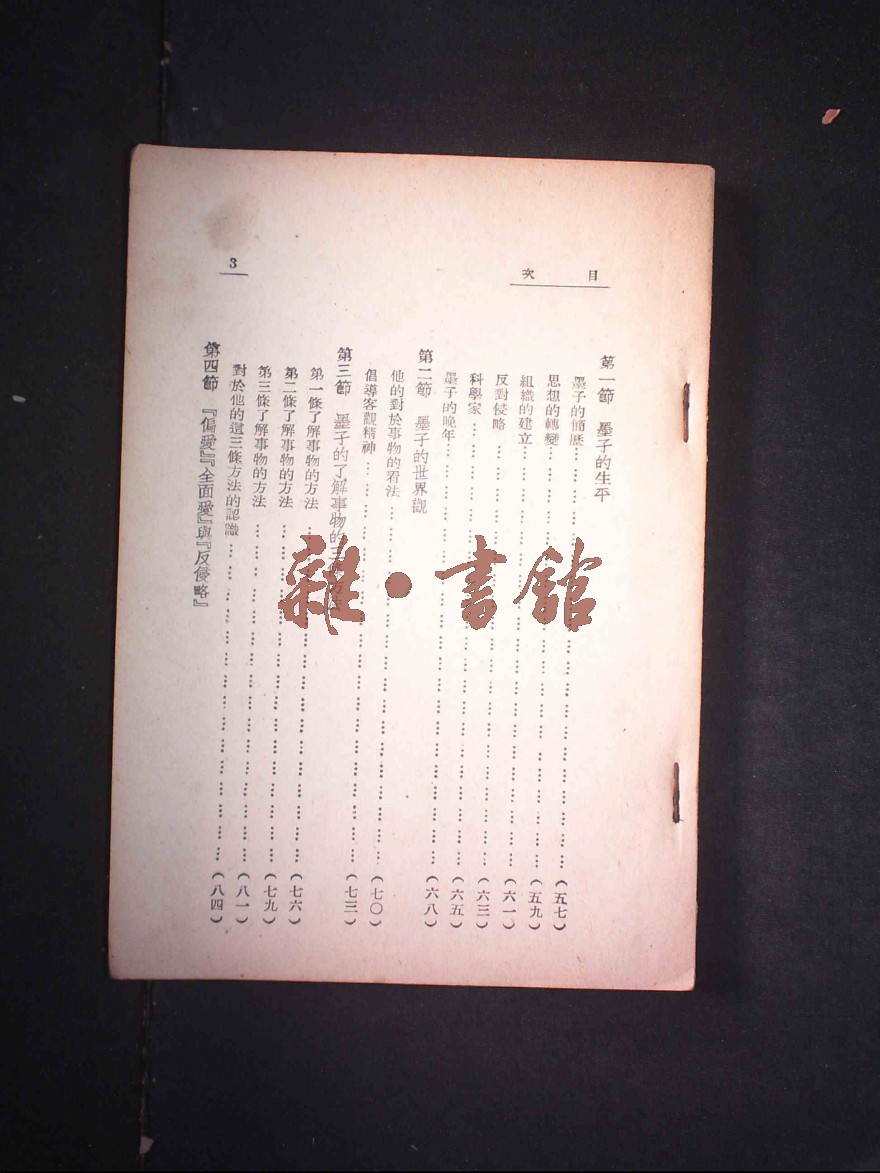 目次
第一節　墨子的生平
墨子的簡歷……(五七)
思想的轉變……(五九)
組織的建立……(六一)
反對侵略……(六三)
科學家……(六五)
墨子的晚年……(六八)
第二節　墨子的世界觀
他的對於事物的看法……(七〇)
倡導客觀精神……(七三)
第三節　墨子的了解事物的三條方法
第一條了解事物的方法……(七六)
第二條了解事物的方法……(七九)
第三條了解事物的方法……(八一)
對於他的這三條方法的認識……(八四)
第四節　『偏愛』『全面愛』與『反侵略』
3
雜·書館